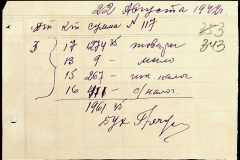 22 Августа 1942г.
Дт Кт Сумма № 117
353
343
3 17 1274 35 товары
13 9 - мыло
15 267 -
16 411 - с/налог
1961 35
Бух